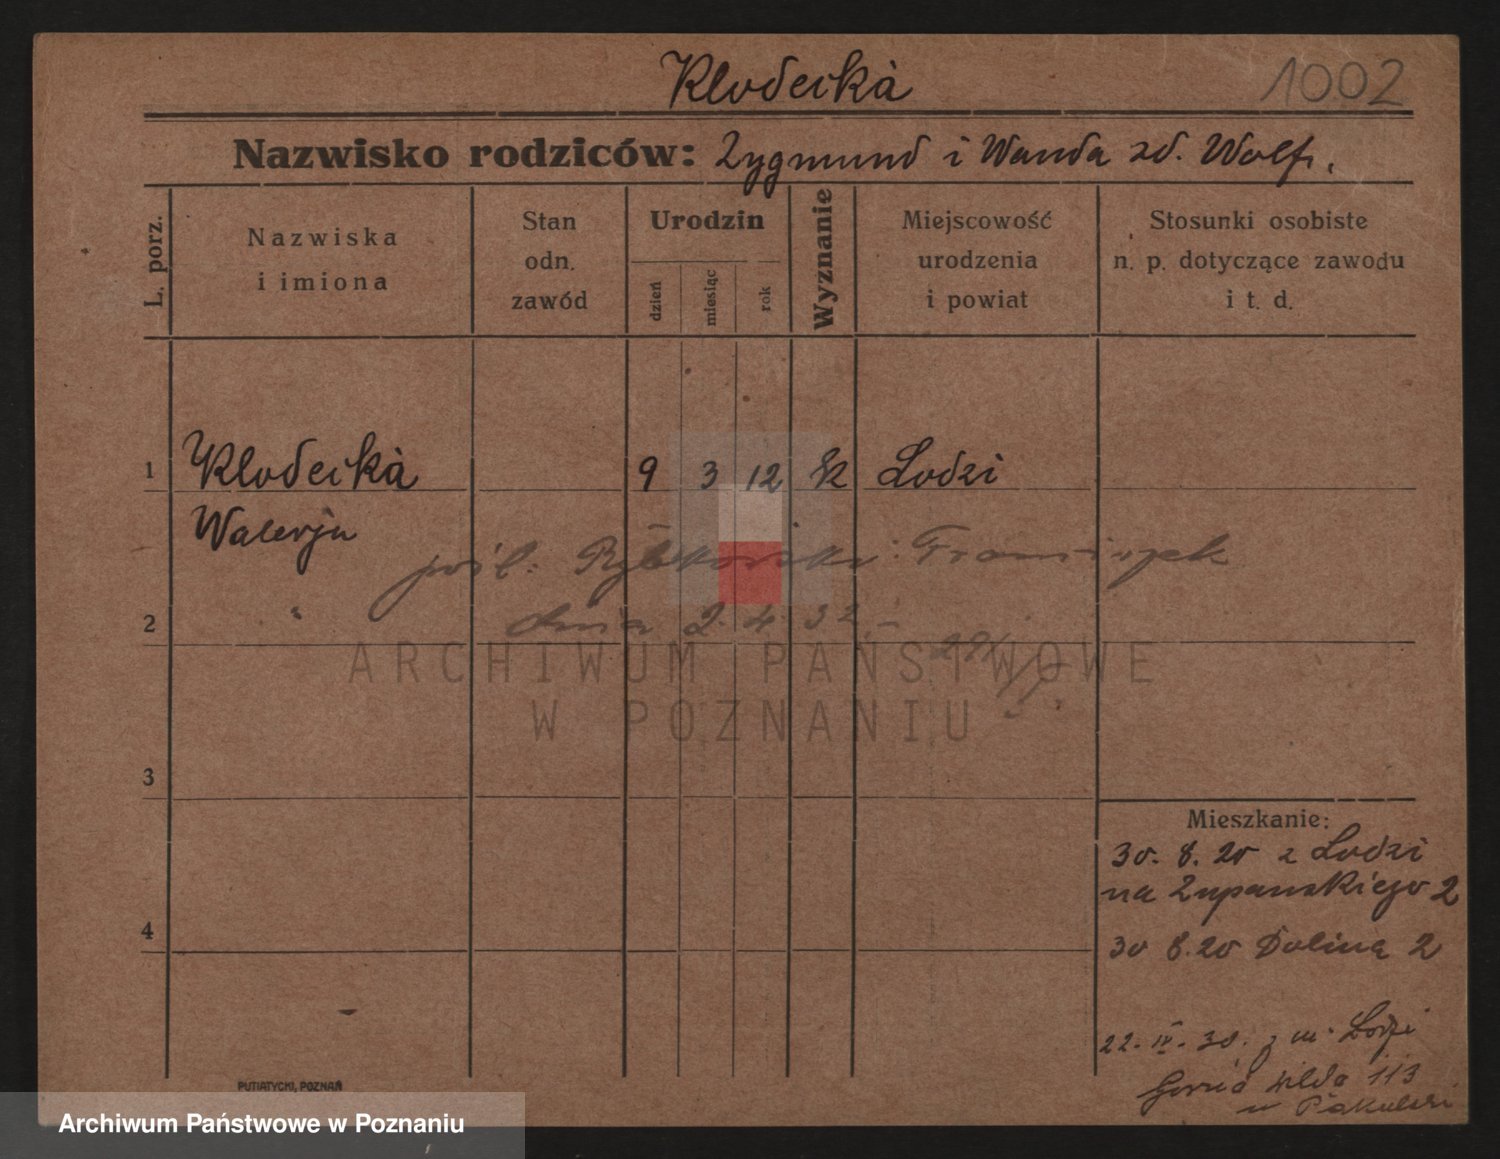 Kłodecka
1002
Nazwisko rodziców: Zygmund i Wanda zd. Wolf.
L. porz.
Nazwiska i imiona
Stan odn. zawód
Urodzin
dzień
miesiąc
rok
Wyznanie
Miejscowość urodzenia i powiat
Stosunki osobiste n. p. dotyczące zawodu i t. d.
1 Kłodecka 9 3 12 rk Lodzi
Walerja
pośl. Rybkowski Franciszek
2 dnia 2. 4. 32
ARCHIWUM PAŃSTWOWE
W POZNANIU
3
Mieszkanie:
30. 8. 20 z Lodzi
na Zupanskiego 2
4
30 8. 20 Dolina 2
22. IV. 30. z m. Lodzi
Gorna Wilda 113
PUTIATYCKI, POZNAŃ
Archiwum Państwowe w Poznaniu